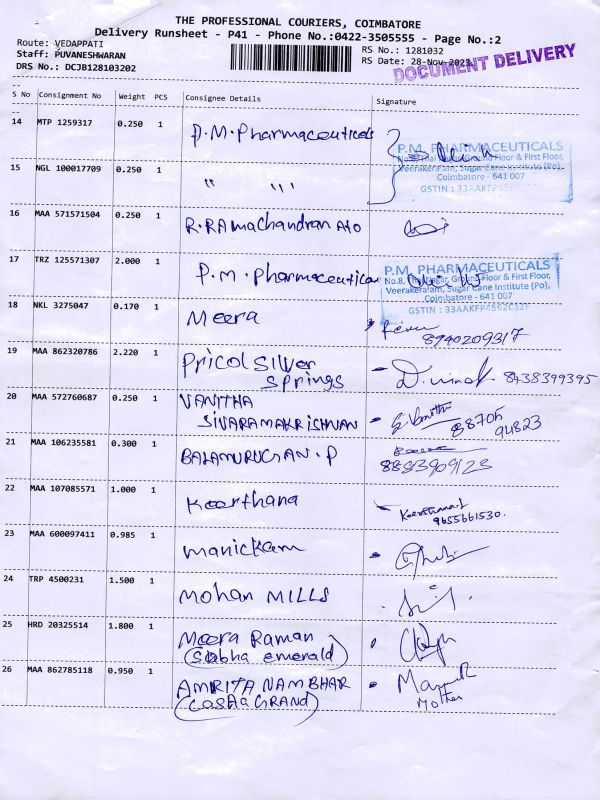 THE PROFESSIONAL COURIERS, COIMBATORE
Delivery Runsheet - P41 - Phone No.:0422-3505555 - Page No.:2
Route: VEDAPPATI
Staff: PUVANESHWARAN
DRS No.: DCJB128103202
RS No.: 1281032
RS Date: 28-Nov-2023
DOCUMENT DELIVERY
S No Consignment No Weight PCS Consignee Details Signature
14 MTP 1259317 0.250 1 P.M. Pharmaceuticals
P.M. PHARMACEUTICALS
Floor & First Floor,
Veerakeralam, Sugar Cane Institute (Po),
Coimbatore - 641 007
GSTIN : 33AAKFP4562
15 NGL 100017709 0.250 1 " " "
16 MAA 571571504 0.250 1 R. RAmachandran A/o
17 TRZ 125571307 2.000 1 P.M. Pharmaceutical
P.M. PHARMACEUTICALS
No.8, Ground Floor & First Floor,
Veerakeralam, Sugar Cane Institute (Po),
Coimbatore - 641 007
GSTIN : 33AAKFP4562C1ZF
18 NKL 3275047 0.170 1 Meera
8940209317
19 MAA 862320786 2.220 1 Pricol Silver
Springs
D. vinoth 8438399395
20 MAA 572760687 0.250 1 VANITHA
SIVARAMAKRISHNAN
S. Vanitha 88705
94823
21 MAA 106235581 0.300 1 BALAMURUGAN.P
8883909123
22 MAA 107085571 1.000 1 Keerthana
Keerthana.L
9655661530.
23 MAA 600097411 0.985 1 manickam
24 TRP 4500231 1.500 1 Mohan MILLS
25 HRD 20325514 1.800 1 Meera Raman
(Sobha emerald)
26 MAA 862785118 0.950 1 AMRITA NAMBIAR
(CASAGRAND)
Mother